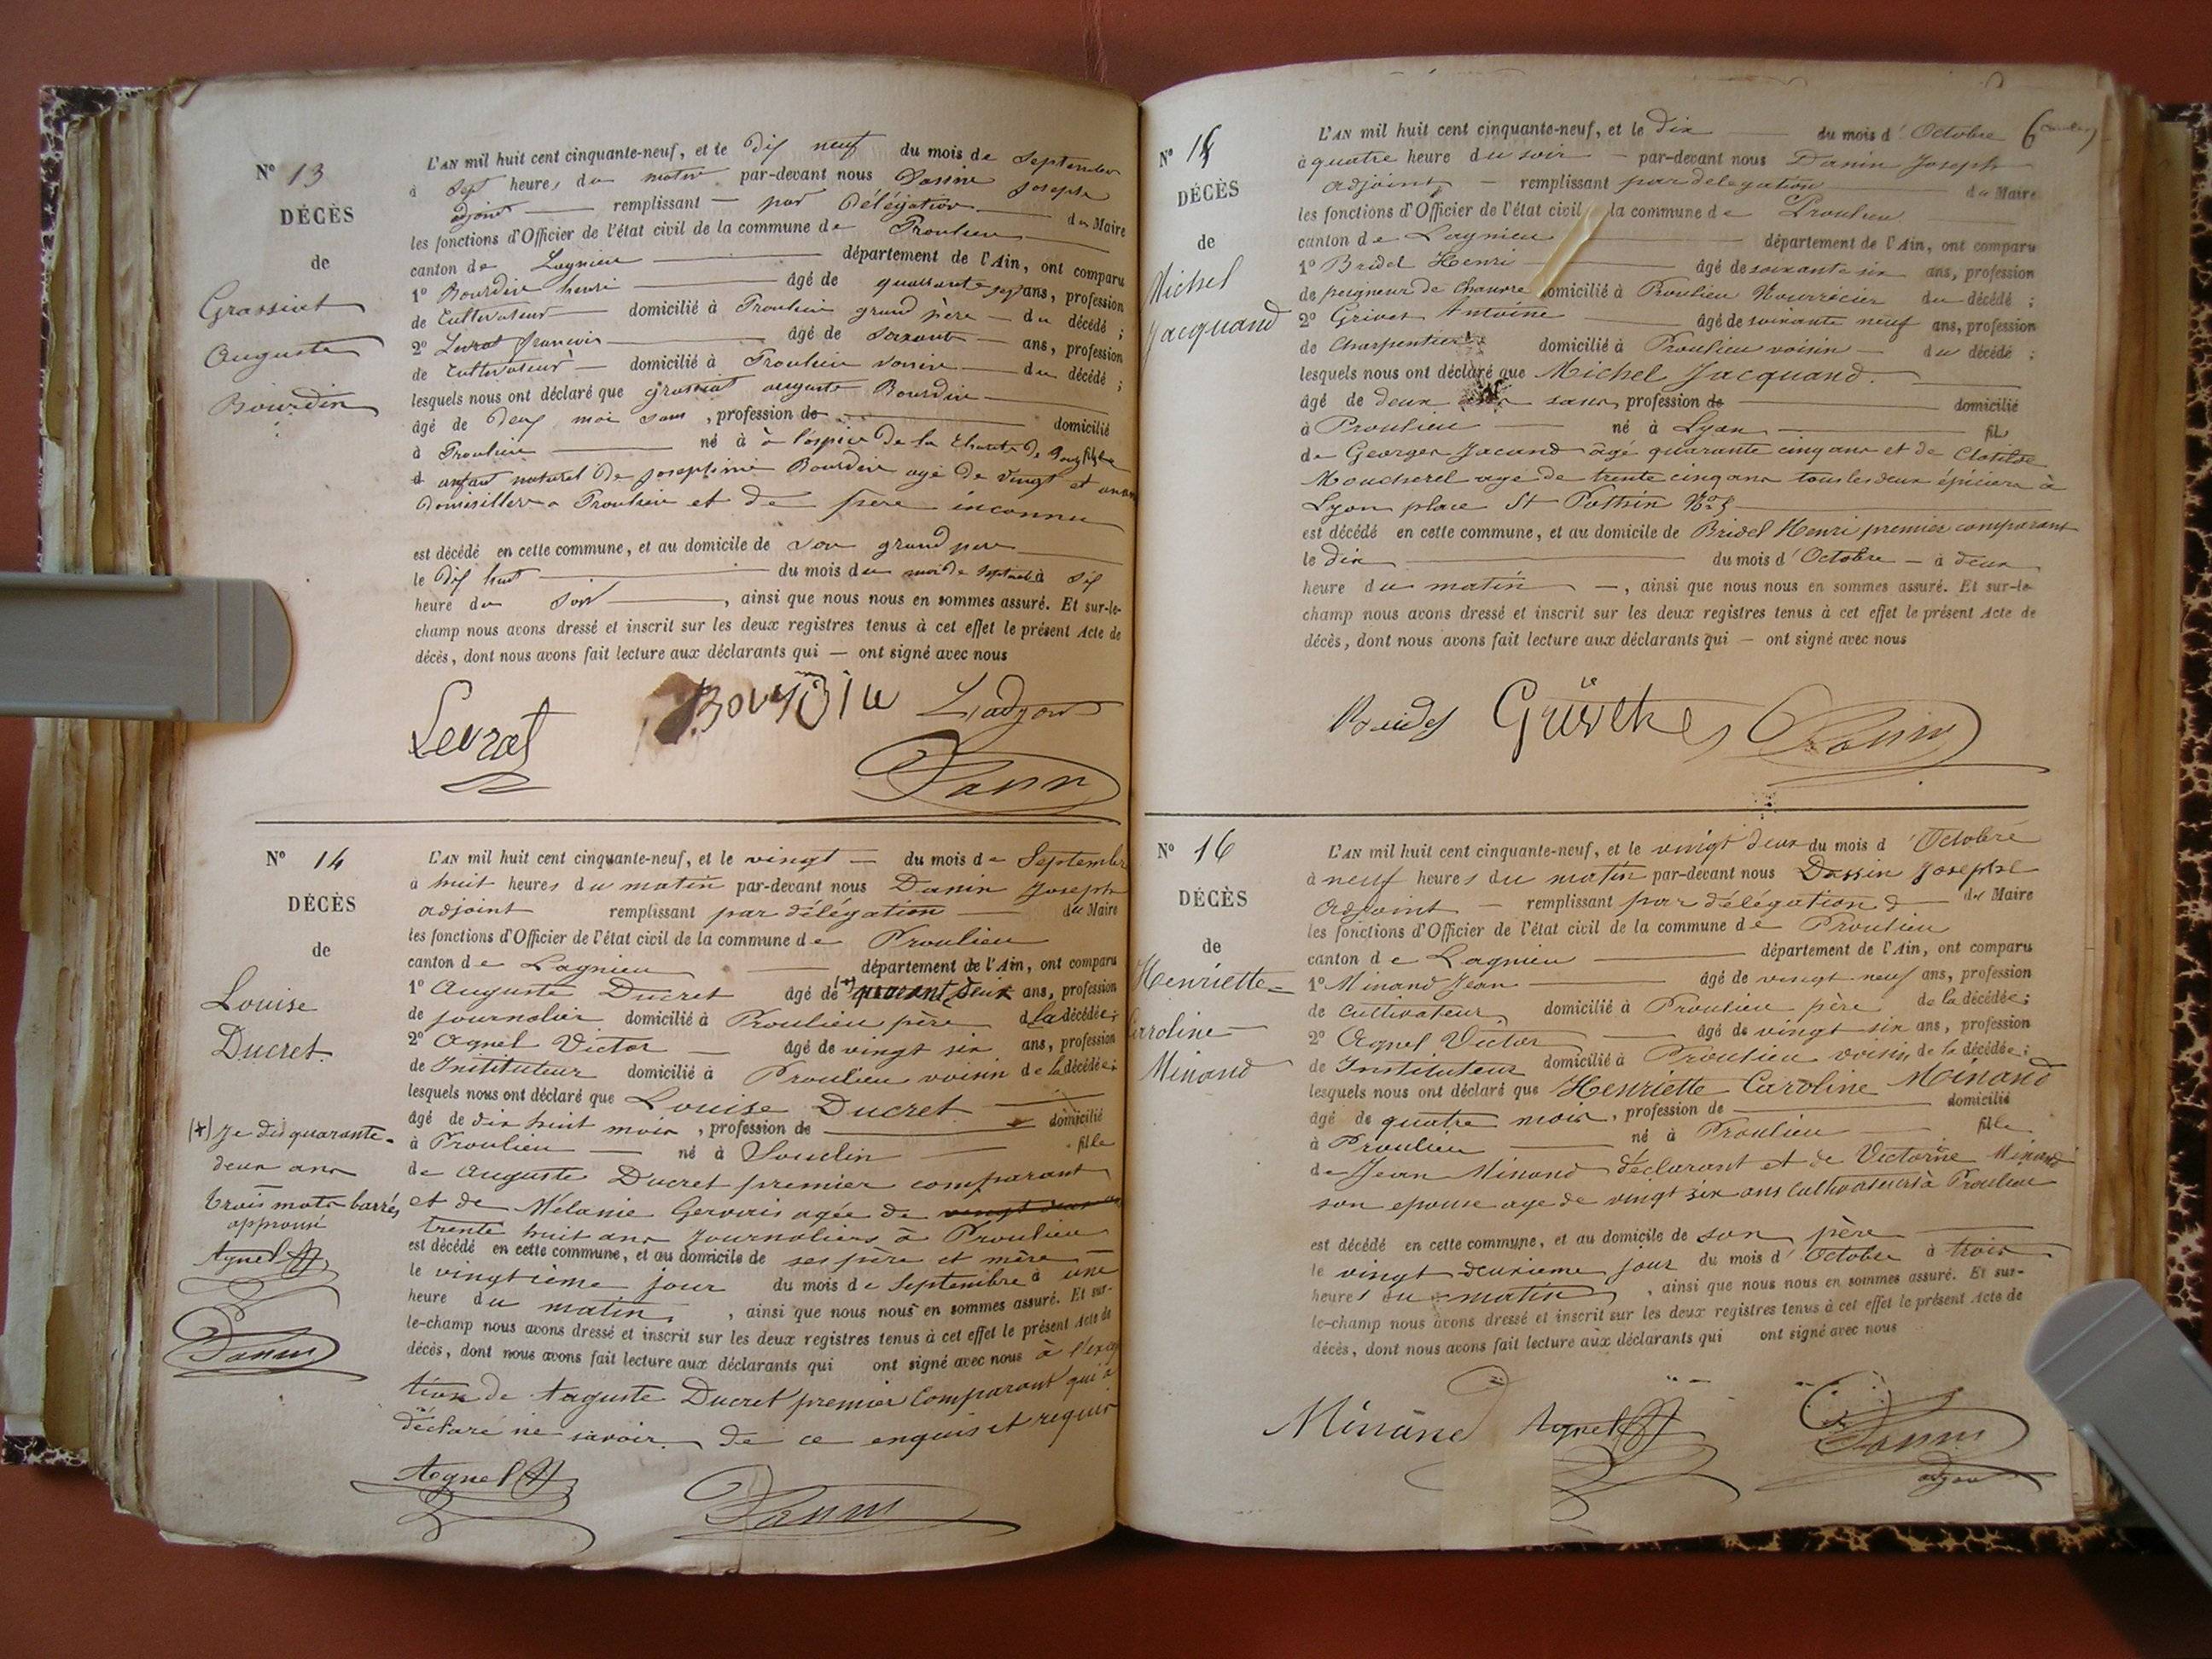 N° 13
DÉCÈS
de
Grassiat
Auguste
Bourdin
L'AN mil huit cent cinquante-neuf, et le dix neuf du mois de Septembre
à Sept heures du matin par-devant nous Joseph
adjoint remplissant par délégation du Maire
les fonctions d'Officier de l'état civil de la commune de Proulieu
canton de Lagnieu département de l'Ain, ont comparu
1° Bourdin henri âgé de quarante sept ans, profession
de Cultivateur domicilié à Proulieu grand père du décédé ;
2° Levrat francois âgé de ans, profession
de Cultivateur domicilié à Proulieu voisin du décédé ;
lesquels nous ont déclaré que grassiat auguste Bourdin
âgé de deux moi sans , profession de domicilié
à Proulieu né à à l'ospice de la Charité de
enfant naturel de Josephine Bourdin agé de vingt et
domisiller a Proulieu et de père inconnu
est décédé en cette commune, et au domicile de son grand pere
le dix huit du mois du moi de Septembre à dix
heure du soir , ainsi que nous nous en sommes assuré. Et sur-le-
champ nous avons dressé et inscrit sur les deux registres tenus à cet effet le présent Acte de
décès, dont nous avons fait lecture aux déclarants qui — ont signé avec nous
Levrat Bourdin L'adjoint
N° 14
DÉCÈS
de
Louise
Ducret
(+) Je dis quarante-
deux ans
trois mots barrés
approuvé
Agnel
L'AN mil huit cent cinquante-neuf, et le vingt du mois de Septembre
à huit heures du matin par-devant nous Joseph
adjoint remplissant par délégation du Maire
les fonctions d'Officier de l'état civil de la commune de Proulieu
canton de Lagnieu département de l'Ain, ont comparu
1° Auguste Ducret âgé de (+) quarant deux ans, profession
de journalier domicilié à Proulieu père de la décédée ;
2° Agnel Victor âgé de vingt six ans, profession
de Instituteur domicilié à Proulieu voisin de la décédée ;
lesquels nous ont déclaré que Louise Ducret
âgé de dix huit mois , profession de domicilié
à Proulieu né à Soudin fille
de Auguste Ducret premier comparant
et de Mélanie Gervais agée de vingt deux ans
trente huit ans journaliers à Proulieu
est décédé en cette commune, et au domicile de ses père et mère
le vingtième jour du mois de Septembre à une
heure du matin , ainsi que nous nous en sommes assuré. Et sur-
le-champ nous avons dressé et inscrit sur les deux registres tenus à cet effet le présent Acte de
décès, dont nous avons fait lecture aux déclarants qui ont signé avec nous à l'excep
tion de Auguste Ducret premier comparant qui a
déclaré ne savoir de ce enquis et requis
Agnel
N° 15
DÉCÈS
de
Michel
Jacquand
L'AN mil huit cent cinquante-neuf, et le dix du mois d'Octobre 6
à quatre heure du soir par-devant nous Joseph
adjoint remplissant par délégation du Maire
les fonctions d'Officier de l'état civil la commune de Proulieu
canton de Lagnieu département de l'Ain, ont comparu
1° Bridel Henri âgé de soixante six ans, profession
de peigneur de chanvre domicilié à Proulieu Nourricier du décédé ;
2° Grivet Antoine âgé de soixante neuf ans, profession
de Charpentier domicilié à Proulieu voisin du décédé ;
lesquels nous ont déclaré que Michel Jacquand.
âgé de deux sans, profession de domicilié
à Proulieu né à Lyon fils
de Georges Jacand âgé quarante cinq ans et de Clotilde
Moucherel agé de trente cinq ans tous les deux épiciers à
Lyon place St Pothin No 5
est décédé en cette commune, et au domicile de Bridel Henri premier comparant
le dix du mois d'Octobre à deux
heure du matin , ainsi que nous nous en sommes assuré. Et sur-le-
champ nous avons dressé et inscrit sur les deux registres tenus à cet effet le présent Acte de
décès, dont nous avons fait lecture aux déclarants qui — ont signé avec nous
N° 16
DÉCÈS
de
Henriette
Caroline
Minand
L'AN mil huit cent cinquante-neuf, et le vingt deux du mois d'Octobre
à neuf heures du matin par-devant nous Joseph
adjoint remplissant par délégation du Maire
les fonctions d'Officier de l'état civil de la commune de Proulieu
canton de Lagnieu département de l'Ain, ont comparu
1° Minand Jean âgé de vingt neuf ans, profession
de cultivateur domicilié à Proulieu père de la décédée ;
2° Agnel Victor âgé de vingt six ans, profession
de Instituteur domicilié à Proulieu voisin de la décédée ;
lesquels nous ont déclaré que Henriette Caroline Minand
âgé de quatre mois, profession de domicilié
à Proulieu né à Proulieu fille
de Jean Minand déclarant et de Victorine Minand
son epouse age de vingt six ans cultivateurs à Proulieu
est décédé en cette commune, et au domicile de son père
le vingt deuxieme jour du mois d'Octobre à trois
heures du matin , ainsi que nous nous en sommes assuré. Et sur-
le-champ nous avons dressé et inscrit sur les deux registres tenus à cet effet le présent Acte de
décès, dont nous avons fait lecture aux déclarants qui ont signé avec nous
Minand Agnel